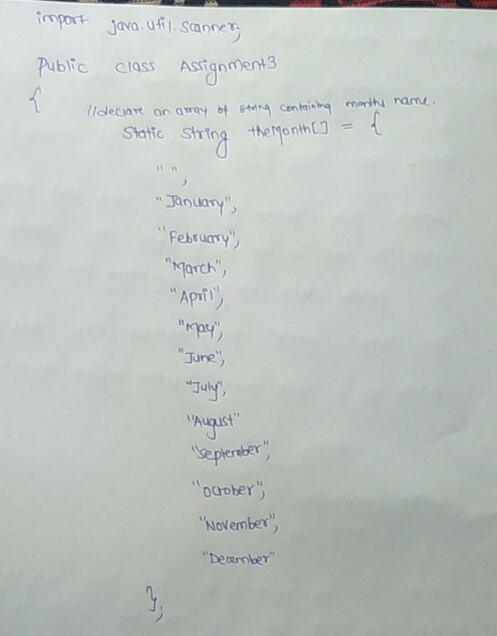 import java.util.Scanner;
Public class Assignment3
{ //declare an array of string containing months name.
Static String theMonth[] = {
" ",
"January",
"February",
"March",
"April",
"May",
"June",
"July",
"August"
"September",
"October",
"November",
"December"
};